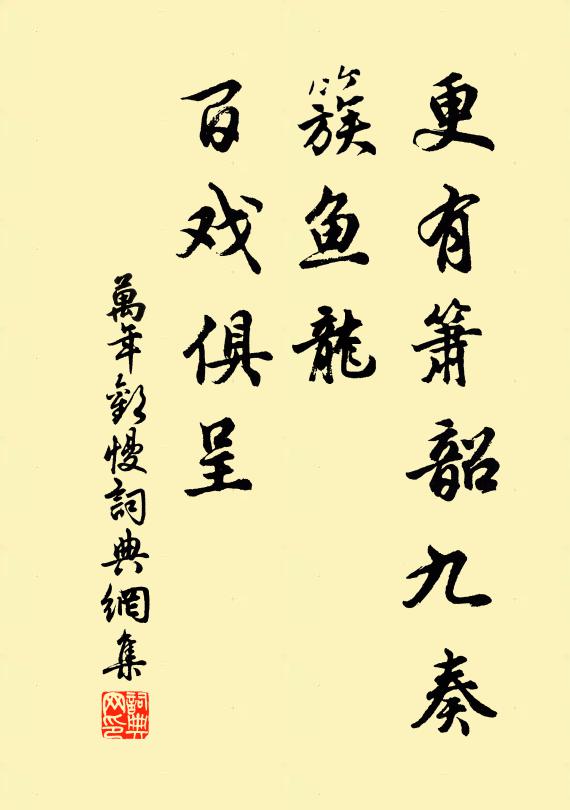 更有簫韶九奏
簇鱼龍
百戏俱呈
萬年歡慢詞典網集
詞典网印